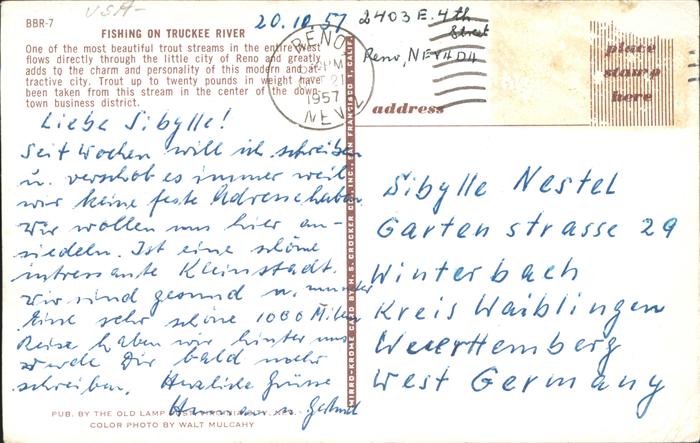 USA-
BBR-7
20.10.57
2403 E. 4th
Street
Reno, NEVADA
FISHING ON TRUCKEE RIVER
One of the most beautiful trout streams in the entire West
flows directly through the little city of Reno and greatly
adds to the charm and personality of this modern and at-
tractive city. Trout up to twenty pounds in weight have
been taken from this stream in the center of the down-
town business district.
RENO
PM
21
1957
NEV.
place
stamp
here
address
Liebe Sibylle!
Seit Wochen will ich schreiben
u. verschob es immer weil
wir keine feste Adresse haben
Wir wollen uns hier an-
siedeln. Ist eine schöne
intressante Kleinstadt.
Wir sind gesund u. munter
Eine sehr schöne 1000 Milen
Reise haben wir hinter uns
werde Dir bald mehr
schreiben. Herzliche Grüsse
Sibylle Nestel
Gartenstrasse 29
Winterbach
Kreis Waiblingen
Wuerttemberg
West Germany
MIRRO-KROME CARD BY H. S. CROCKER CO., INC., SAN FRANCISCO 1, CALIF.
PUB. BY THE OLD LAMP
COLOR PHOTO BY WALT MULCAHY